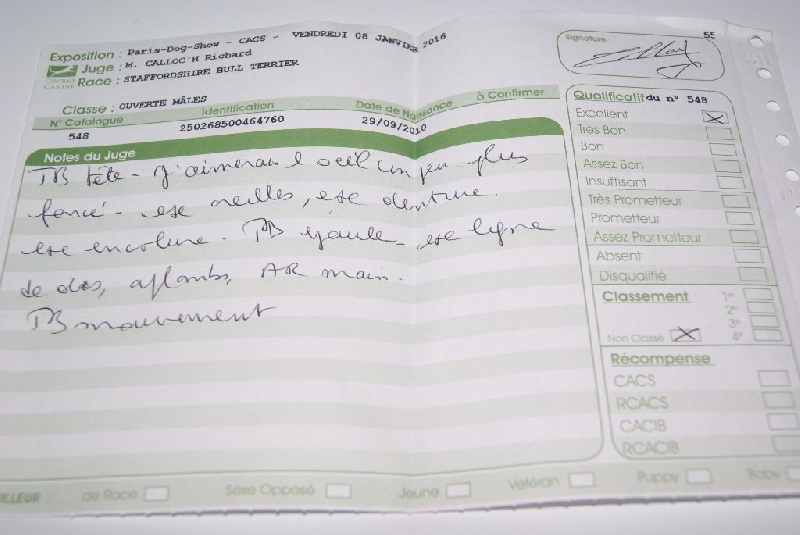 Exposition : Paris-Dog-Show - CACS - VENDREDI 08 JANVIER 2016
Juge : M. CALLOC'H Richard
Race : STAFFORDSHIRE BULL TERRIER
Classe : OUVERTE MÂLES
N° Catalogue Identification Date de Naissance à Confirmer
548 250268500464760 29/09/2010
Notes du Juge
TB tête - J'aimerais l'oeil un peu plus
foncé - exc oreilles, exc denture.
exc encolure. TB gaule - exc ligne
de dos, aplombs, AR main.
TB mouvement
signature
55
Qualificatif du n° 548
Excellent
Très Bon
Bon
Assez Bon
Insuffisant
Très Prometteur
Prometteur
Assez Prometteur
Absent
Disqualifié
Classement 1er
2e
3e
Non Classé 4e
Récompense
CACS
RCACS
CACIB
RCACIB
ILLEUR : de Race Sexe Opposé Jeune Vétéran Puppy Baby